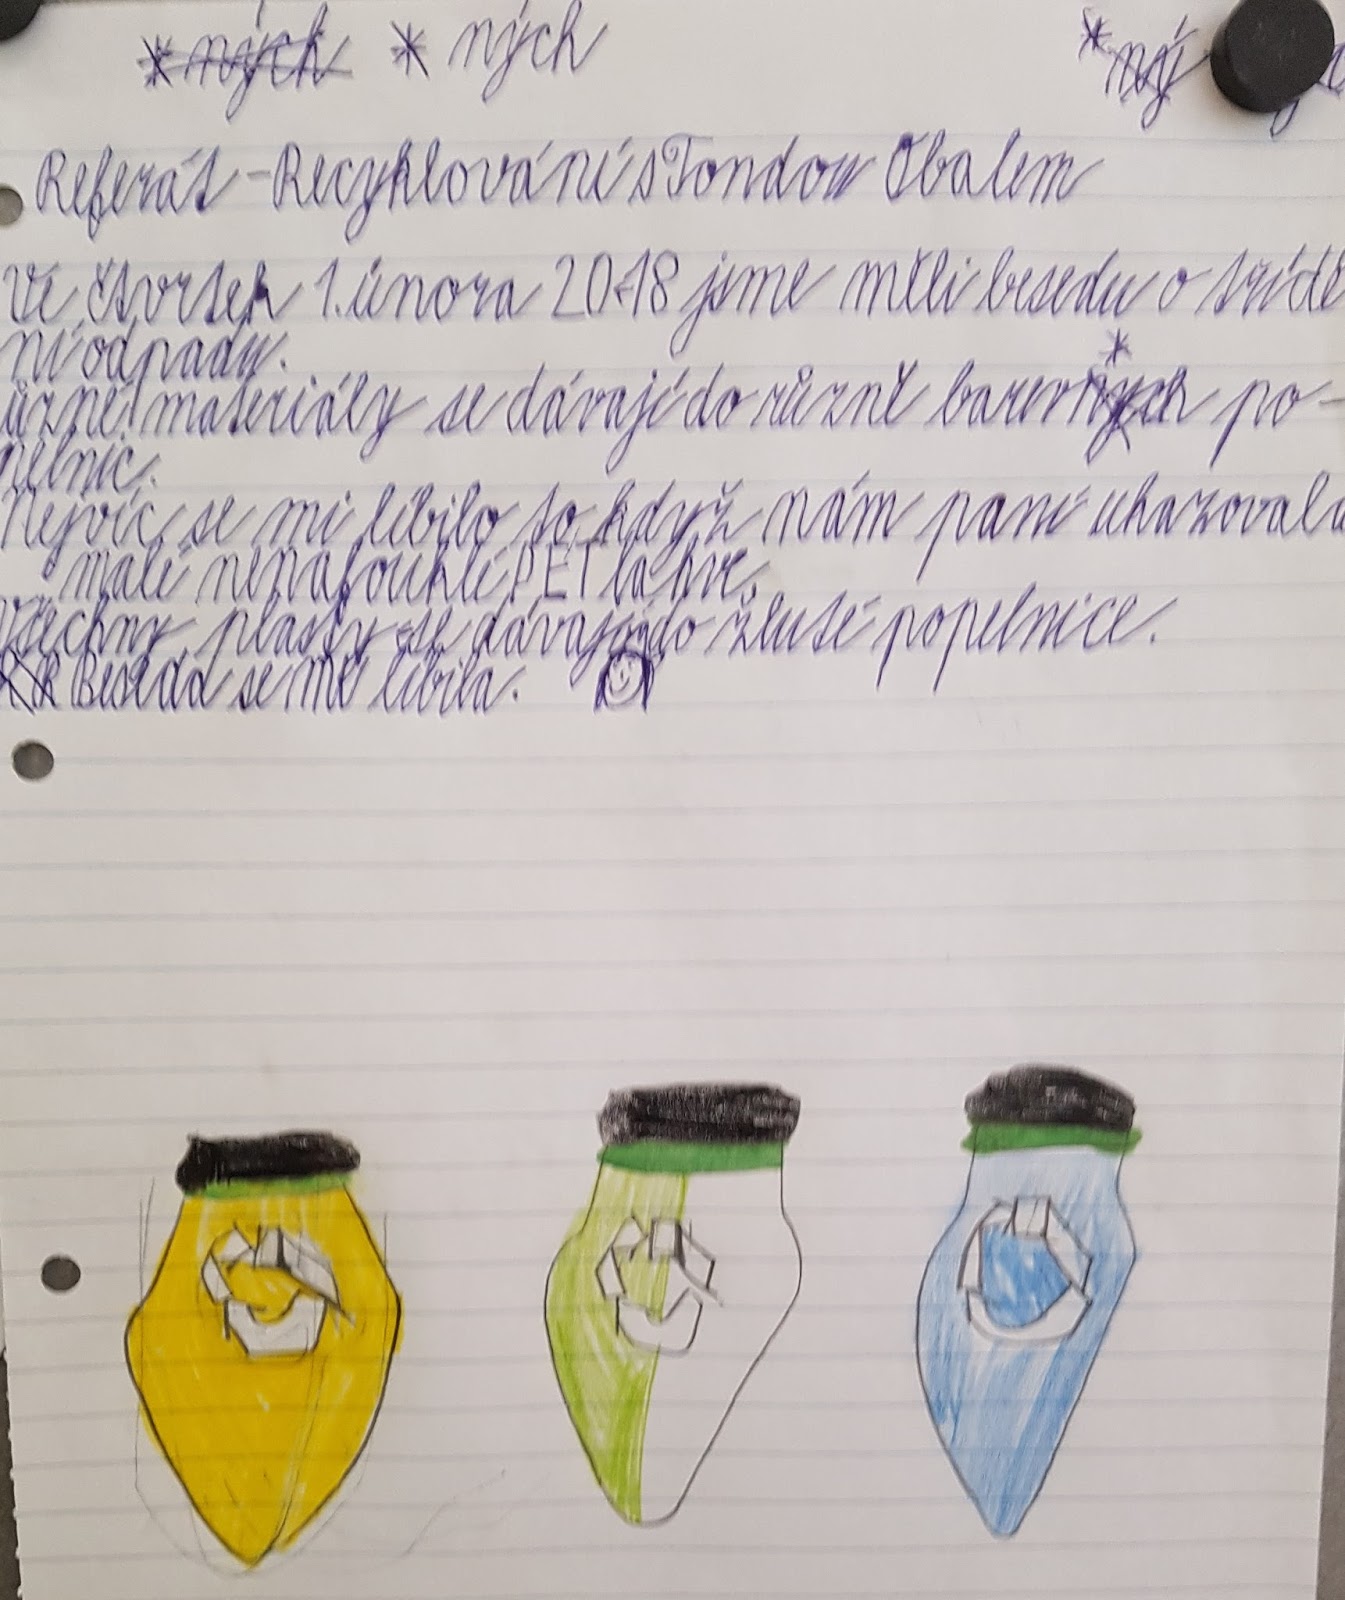 *ných * ných *ný
Referát - Recyklování s Tondou Obalem
Ve čtvrtek 1. února 2018 jsme měli besedu o třídě
ní odpadu.
ůzné materiály se dávají do různě barevných po-
pelnic.
Nejvíc se mi líbilo to, když nám paní ukazovala
malé nenafouklé PET láhve.
všechny plasty se dávají do žluté popelnice.
Beseda se mi líbila.